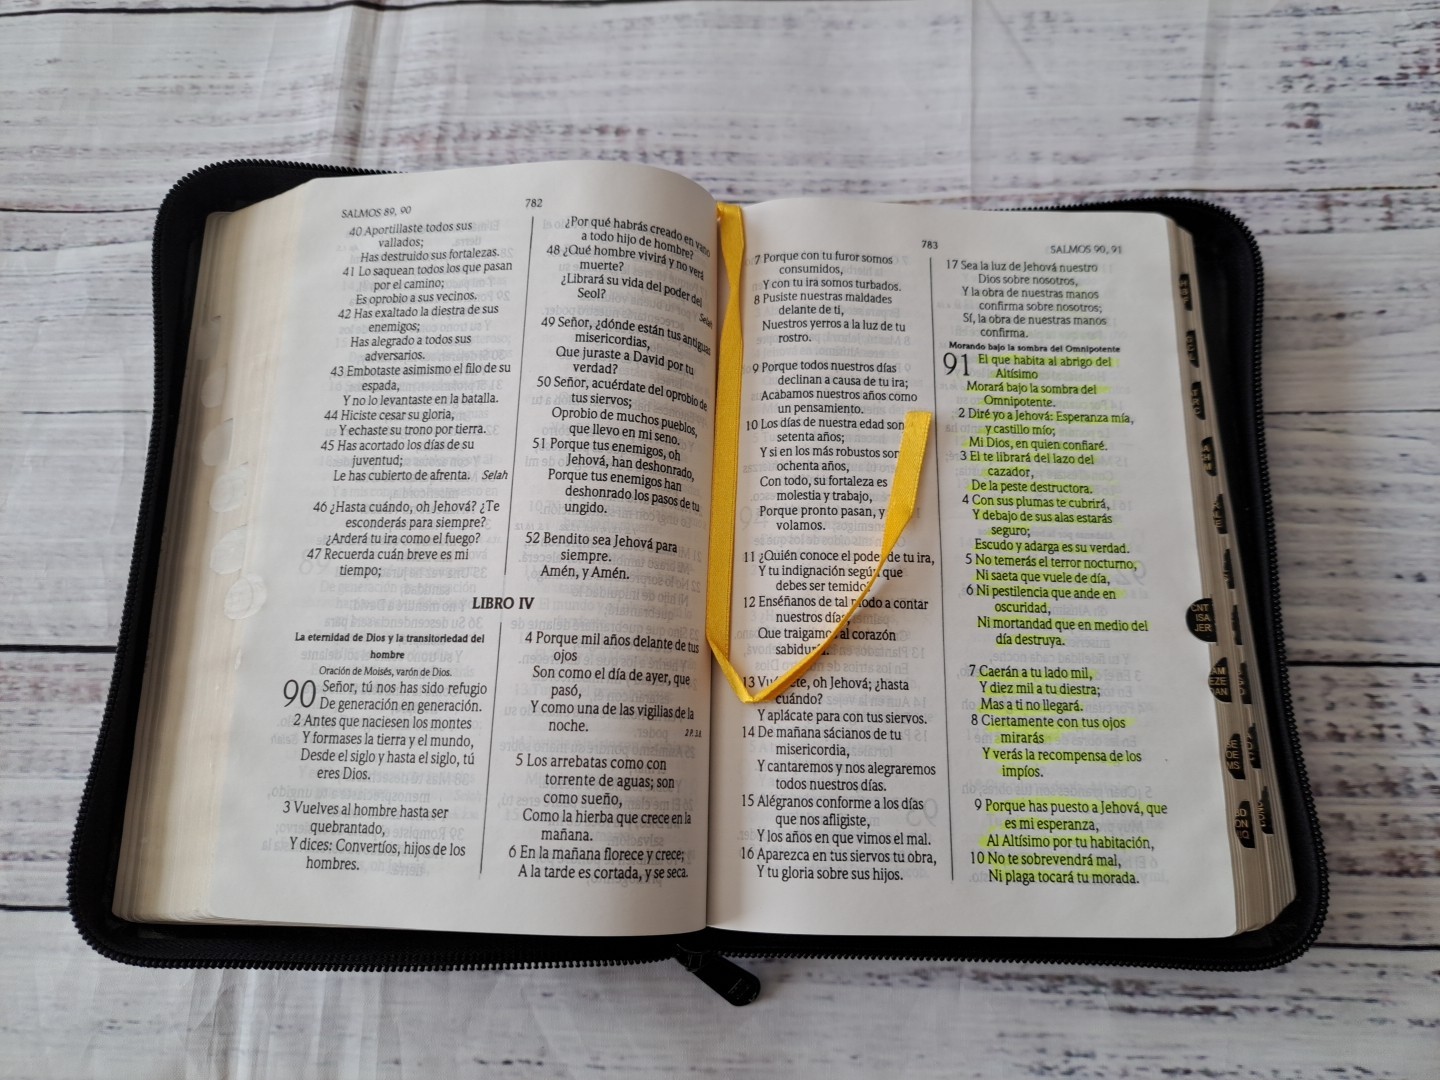 SALMOS 89, 90
782
40 Aportillaste todos sus
vallados;
Has destruido sus fortalezas.
41 Lo saquean todos los que pasan
por el camino;
Es oprobio a sus vecinos.
42 Has exaltado la diestra de sus
enemigos;
Has alegrado a todos sus
adversarios.
43 Embotaste asimismo el filo de su
espada,
Y no lo levantaste en la batalla.
44 Hiciste cesar su gloria,
Y echaste su trono por tierra.
45 Has acortado los días de su
juventud;
Le has cubierto de afrenta. Selah
46 ¿Hasta cuándo, oh Jehová? ¿Te
esconderás para siempre?
¿Arderá tu ira como el fuego?
47 Recuerda cuán breve es mi
tiempo;
¿Por qué habrás creado en vano
a todo hijo de hombre?
48 ¿Qué hombre vivirá y no verá
muerte?
¿Librará su vida del poder del
Seol? Selah
49 Señor, ¿dónde están tus antiguas
misericordias,
Que juraste a David por tu
verdad?
50 Señor, acuérdate del oprobio de
tus siervos;
Oprobio de muchos pueblos,
que llevo en mi seno.
51 Porque tus enemigos, oh
Jehová, han deshonrado,
Porque tus enemigos han
deshonrado los pasos de tu
ungido.
52 Bendito sea Jehová para
siempre.
Amén, y Amén.
LIBRO IV
La eternidad de Dios y la transitoriedad del
hombre
Oración de Moisés, varón de Dios.
90 Señor, tú nos has sido refugio
De generación en generación.
2 Antes que naciesen los montes
Y formases la tierra y el mundo,
Desde el siglo y hasta el siglo, tú
eres Dios.
3 Vuelves al hombre hasta ser
quebrantado,
Y dices: Convertíos, hijos de los
hombres.
4 Porque mil años delante de tus
ojos
Son como el día de ayer, que
pasó,
Y como una de las vigilias de la
noche. 2 P. 3.8
5 Los arrebatas como con
torrente de aguas; son
como sueño,
Como la hierba que crece en la
mañana.
6 En la mañana florece y crece;
A la tarde es cortada, y se seca.
783
SALMOS 90, 91
7 Porque con tu furor somos
consumidos,
Y con tu ira somos turbados.
8 Pusiste nuestras maldades
delante de ti,
Nuestros yerros a la luz de tu
rostro.
9 Porque todos nuestros días
declinan a causa de tu ira;
Acabamos nuestros años como
un pensamiento.
10 Los días de nuestra edad son
setenta años;
Y si en los más robustos son
ochenta años,
Con todo, su fortaleza es
molestia y trabajo,
Porque pronto pasan, y
volamos.
11 ¿Quién conoce el poder de tu ira,
Y tu indignación según que
debes ser temido?
12 Enséñanos de tal modo a contar
nuestros días,
Que traigamos al corazón
sabiduría.
13 Vuélvete, oh Jehová; ¿hasta
cuándo?
Y aplácate para con tus siervos.
14 De mañana sácianos de tu
misericordia,
Y cantaremos y nos alegraremos
todos nuestros días.
15 Alégranos conforme a los días
que nos afligiste,
Y los años en que vimos el mal.
16 Aparezca en tus siervos tu obra,
Y tu gloria sobre sus hijos.
17 Sea la luz de Jehová nuestro
Dios sobre nosotros,
Y la obra de nuestras manos
confirma sobre nosotros;
Sí, la obra de nuestras manos
confirma.
Morando bajo la sombra del Omnipotente
91 El que habita al abrigo del
Altísimo
Morará bajo la sombra del
Omnipotente.
2 Diré yo a Jehová: Esperanza mía,
y castillo mío;
Mi Dios, en quien confiaré.
3 El te librará del lazo del
cazador,
De la peste destructora.
4 Con sus plumas te cubrirá,
Y debajo de sus alas estarás
seguro;
Escudo y adarga es su verdad.
5 No temerás el terror nocturno,
Ni saeta que vuele de día,
6 Ni pestilencia que ande en
oscuridad,
Ni mortandad que en medio del
día destruya.
7 Caerán a tu lado mil,
Y diez mil a tu diestra;
Mas a ti no llegará.
8 Ciertamente con tus ojos
mirarás
Y verás la recompensa de los
impíos.
9 Porque has puesto a Jehová, que
es mi esperanza,
Al Altísimo por tu habitación,
10 No te sobrevendrá mal,
Ni plaga tocará tu morada.
CNT
ISA
JER
EZE
DAN